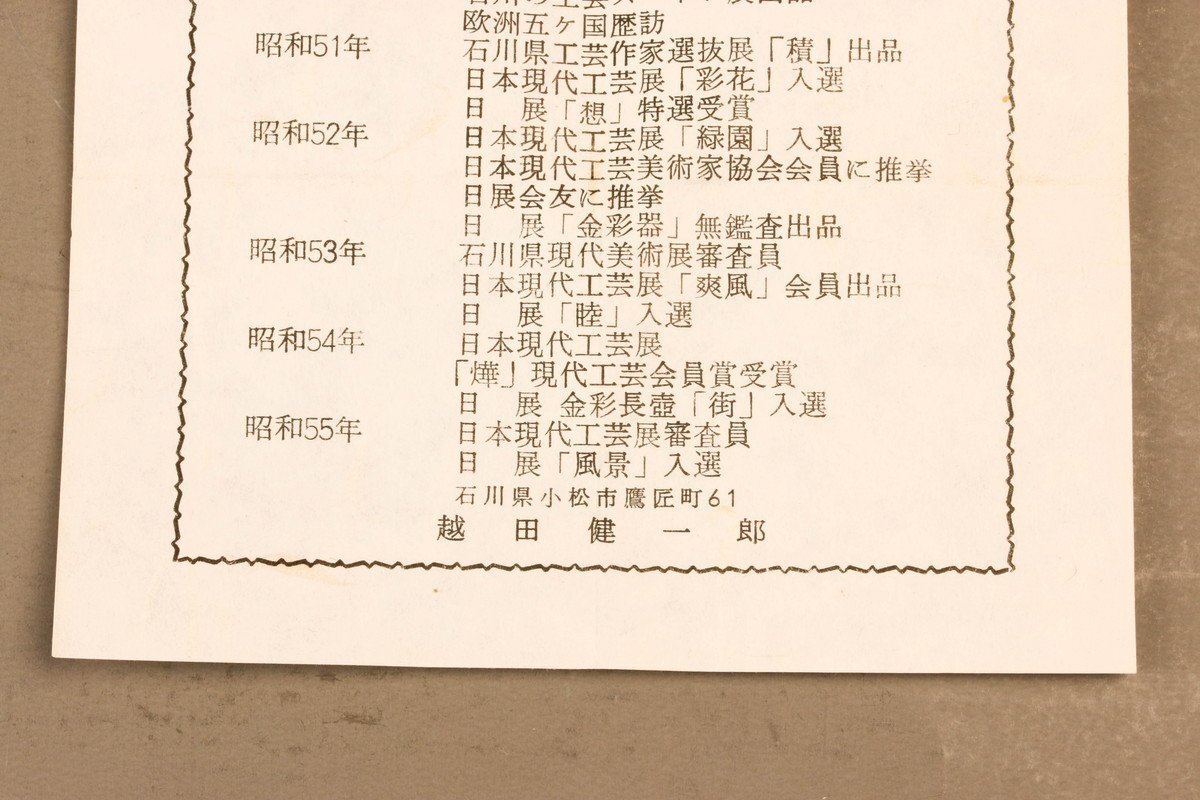 欧洲五ヶ国歴訪
昭和51年 石川県工芸作家選抜展「積」出品
日本現代工芸展「彩花」入選
日　展「想」特選受賞
昭和52年 日本現代工芸展「緑園」入選
日本現代工芸美術家協会会員に推挙
日展会友に推挙
日　展「金彩器」無鑑査出品
昭和53年 石川県現代美術展審査員
日本現代工芸展「爽風」会員出品
日　展「睦」入選
昭和54年 日本現代工芸展
「燁」現代工芸会員賞受賞
日　展 金彩長壺「街」入選
昭和55年 日本現代工芸展審査員
日　展「風景」入選
石川県小松市鷹匠町61
越田健一郎